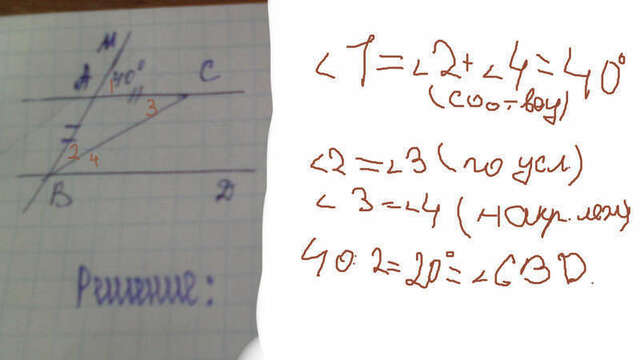 M
A 40° C
1
3
2
4
B D
Решение:
∠1=∠2+∠4=40°
(соо-вет)
∠2=∠3 (по усл)
∠3=∠4 (накр. леж)
40:2=20°=∠CBD.